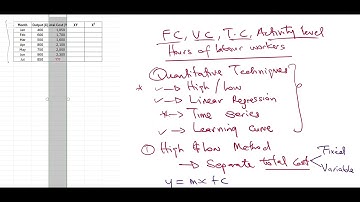 Month Output (X) Total Cost (Y) XY X²
Jan 400 1,050
Feb 600 1,700
Mar 550 1,600
Apr 800 2,100
May 750 2,000
Jun 900 2,300
Jul 850 ???
FC, VC, T.C, Activity level
Hours of labour workers
Quantitative Techniques
* → High / Low
✓ → Linear Regression
* → Time series
✓ → Learning Curve
① High & Low Method
→ Separate total cost
Fixed
Variable
y = mx + c